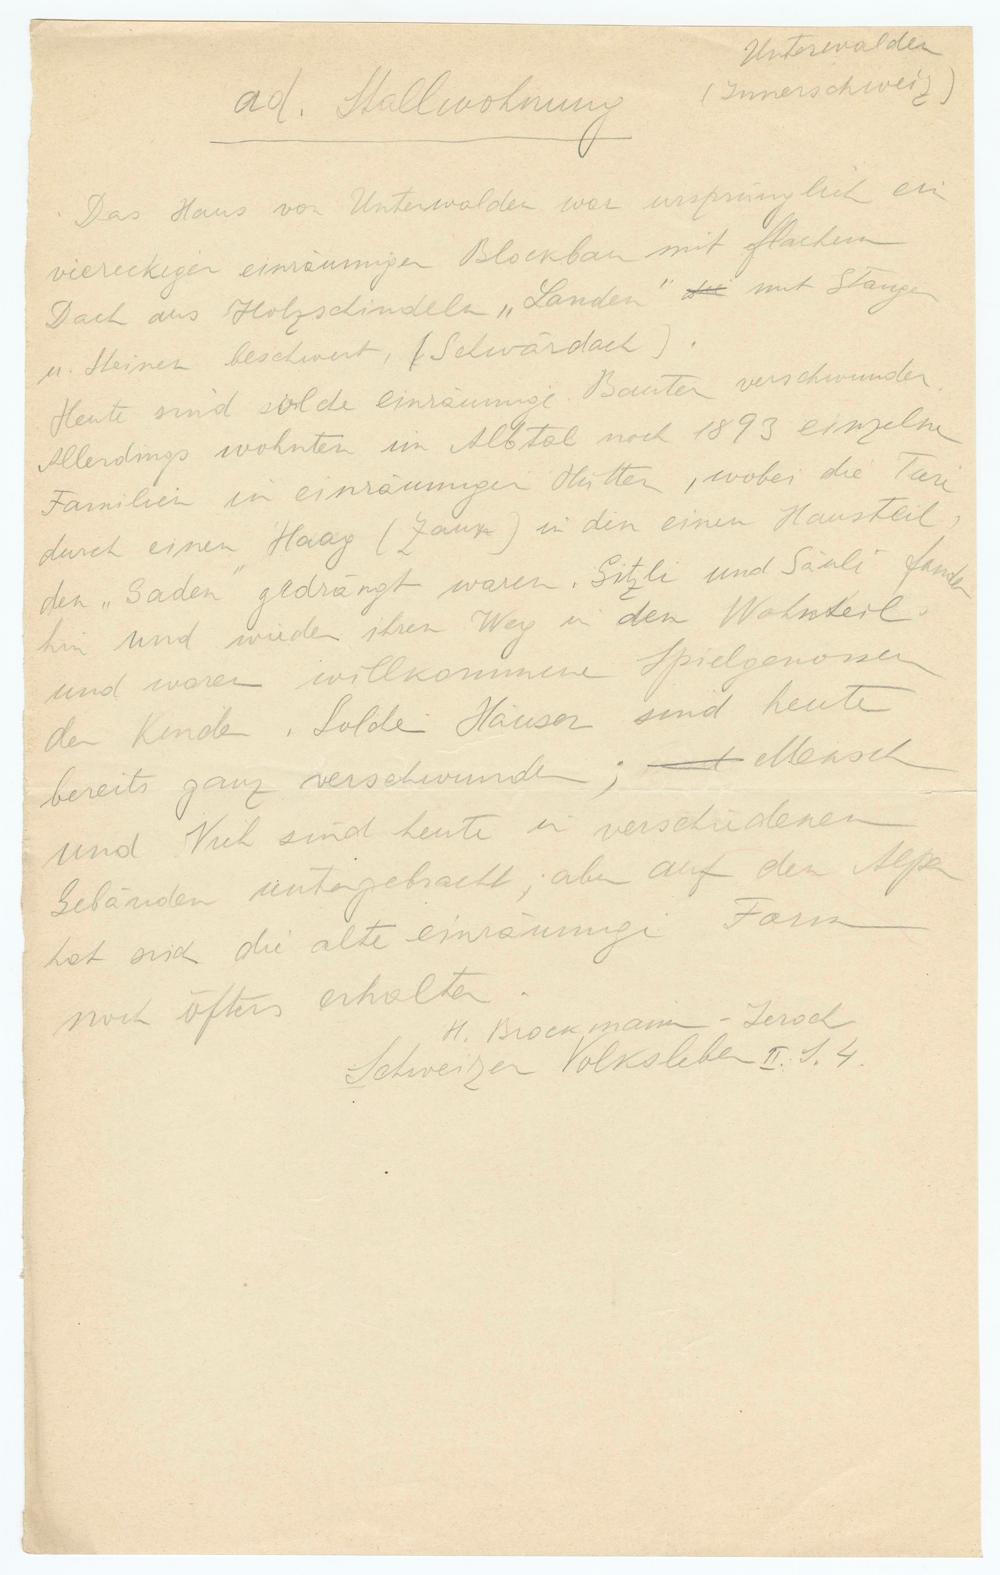 Unterwalden
(Innerschweiz)
ad. Stallwohnung
Das Haus von Unterwalden war ursprünglich ein
viereckiger einräumiger Blockbau mit flachem
Dach aus Holzschindeln „Landen" mit Stangen
u. Steinen beschwert, (Schwärdach).
Heute sind solche einräumige Bauten verschwunden.
Allerdings wohnten im Albtal noch 1893 einzelne
Familien in einräumigen Hütten, wobei die Tiere
durch einen Haag (Zaun) in den einen Hausteil,
den „Gaden" gedrängt waren. Gitzli und Säuli fanden
hin und wieder ihren Weg in den Wohnteil
und waren willkommene Spielgenossen
der Kinder. Solche Häuser sind heute
bereits ganz verschwunden; Mensch
und Vieh sind heute in verschiedenen
Gebäuden untergebracht, aber auf den Alpen
hat sich die alte einräumige Form
noch öfters erhalten.
H. Brockmann-Jeroch
Schweizer Volksleben II. S. 4.